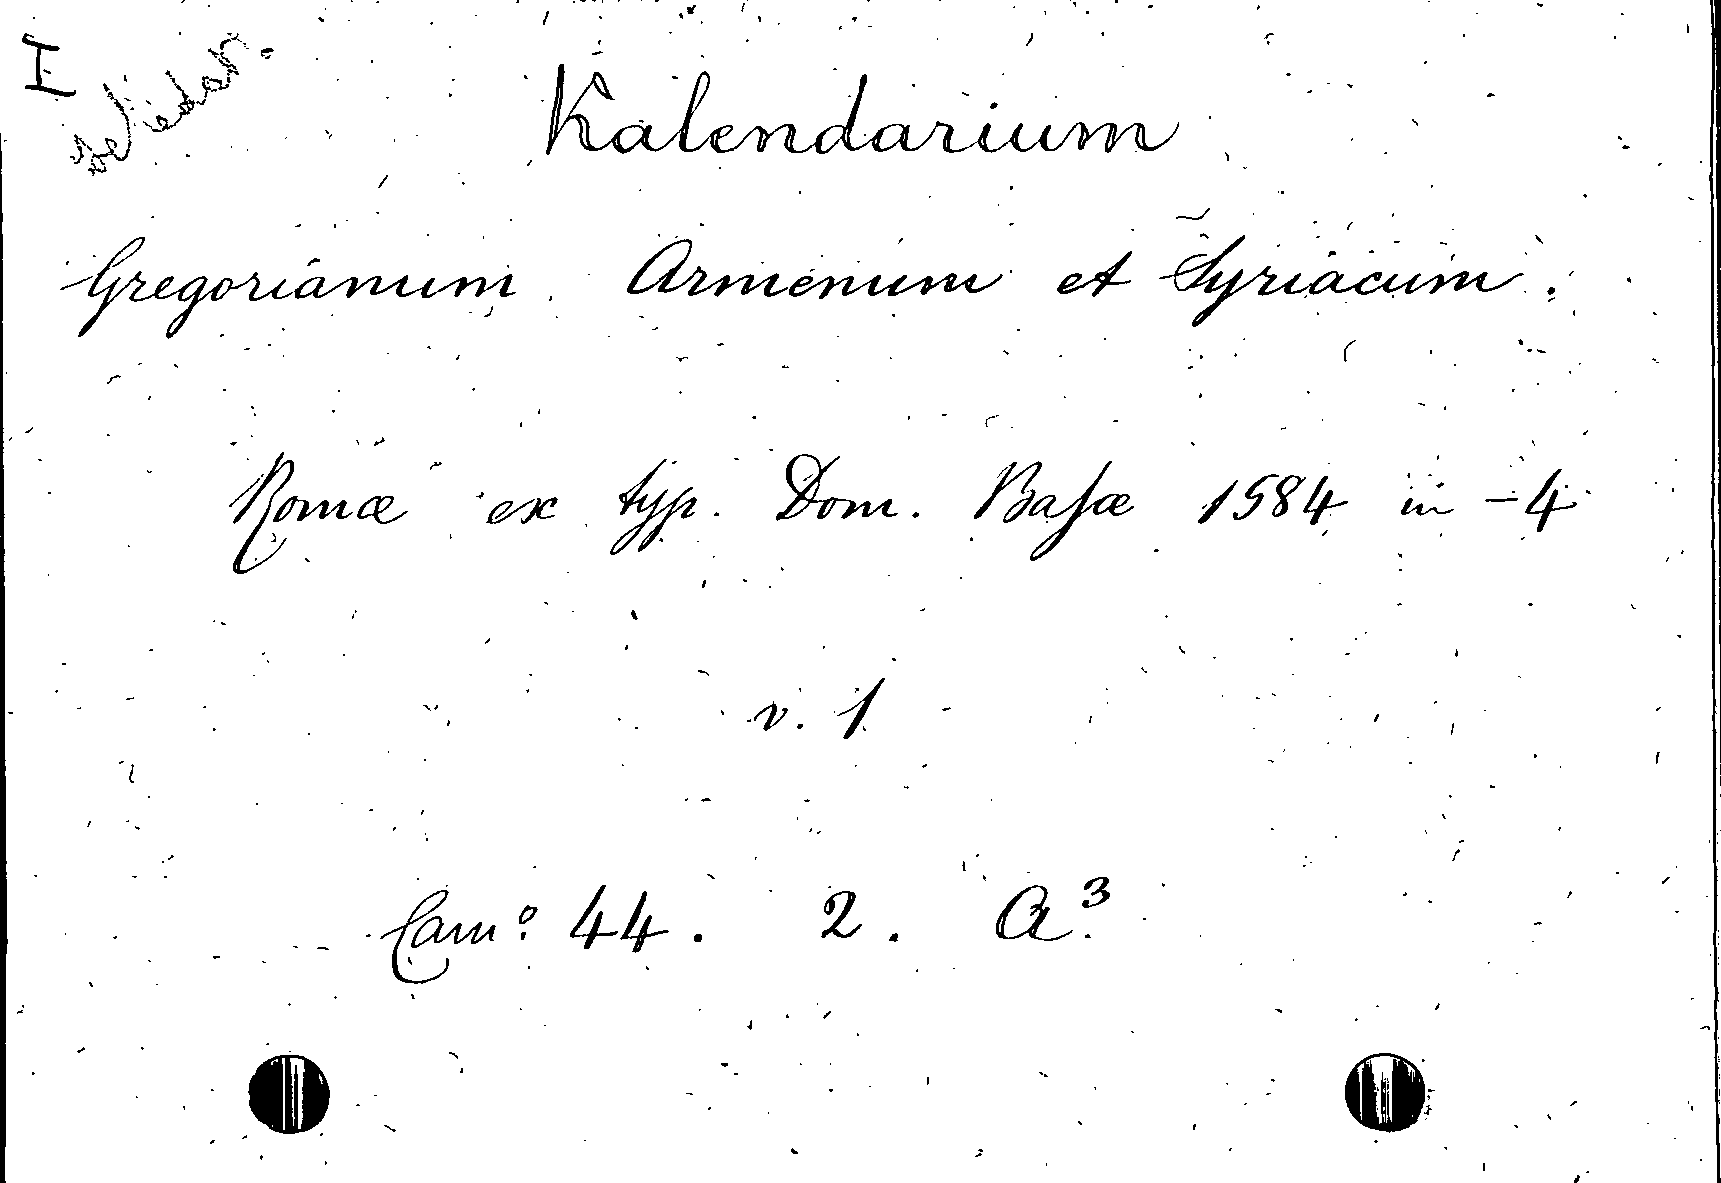 I
Kalendarium
Gregorianum Armenum et Syriacum.
Romæ ex typ. Dom. Basæ 1584 in-4
v. 1
Cam.º 44. 2. A.³